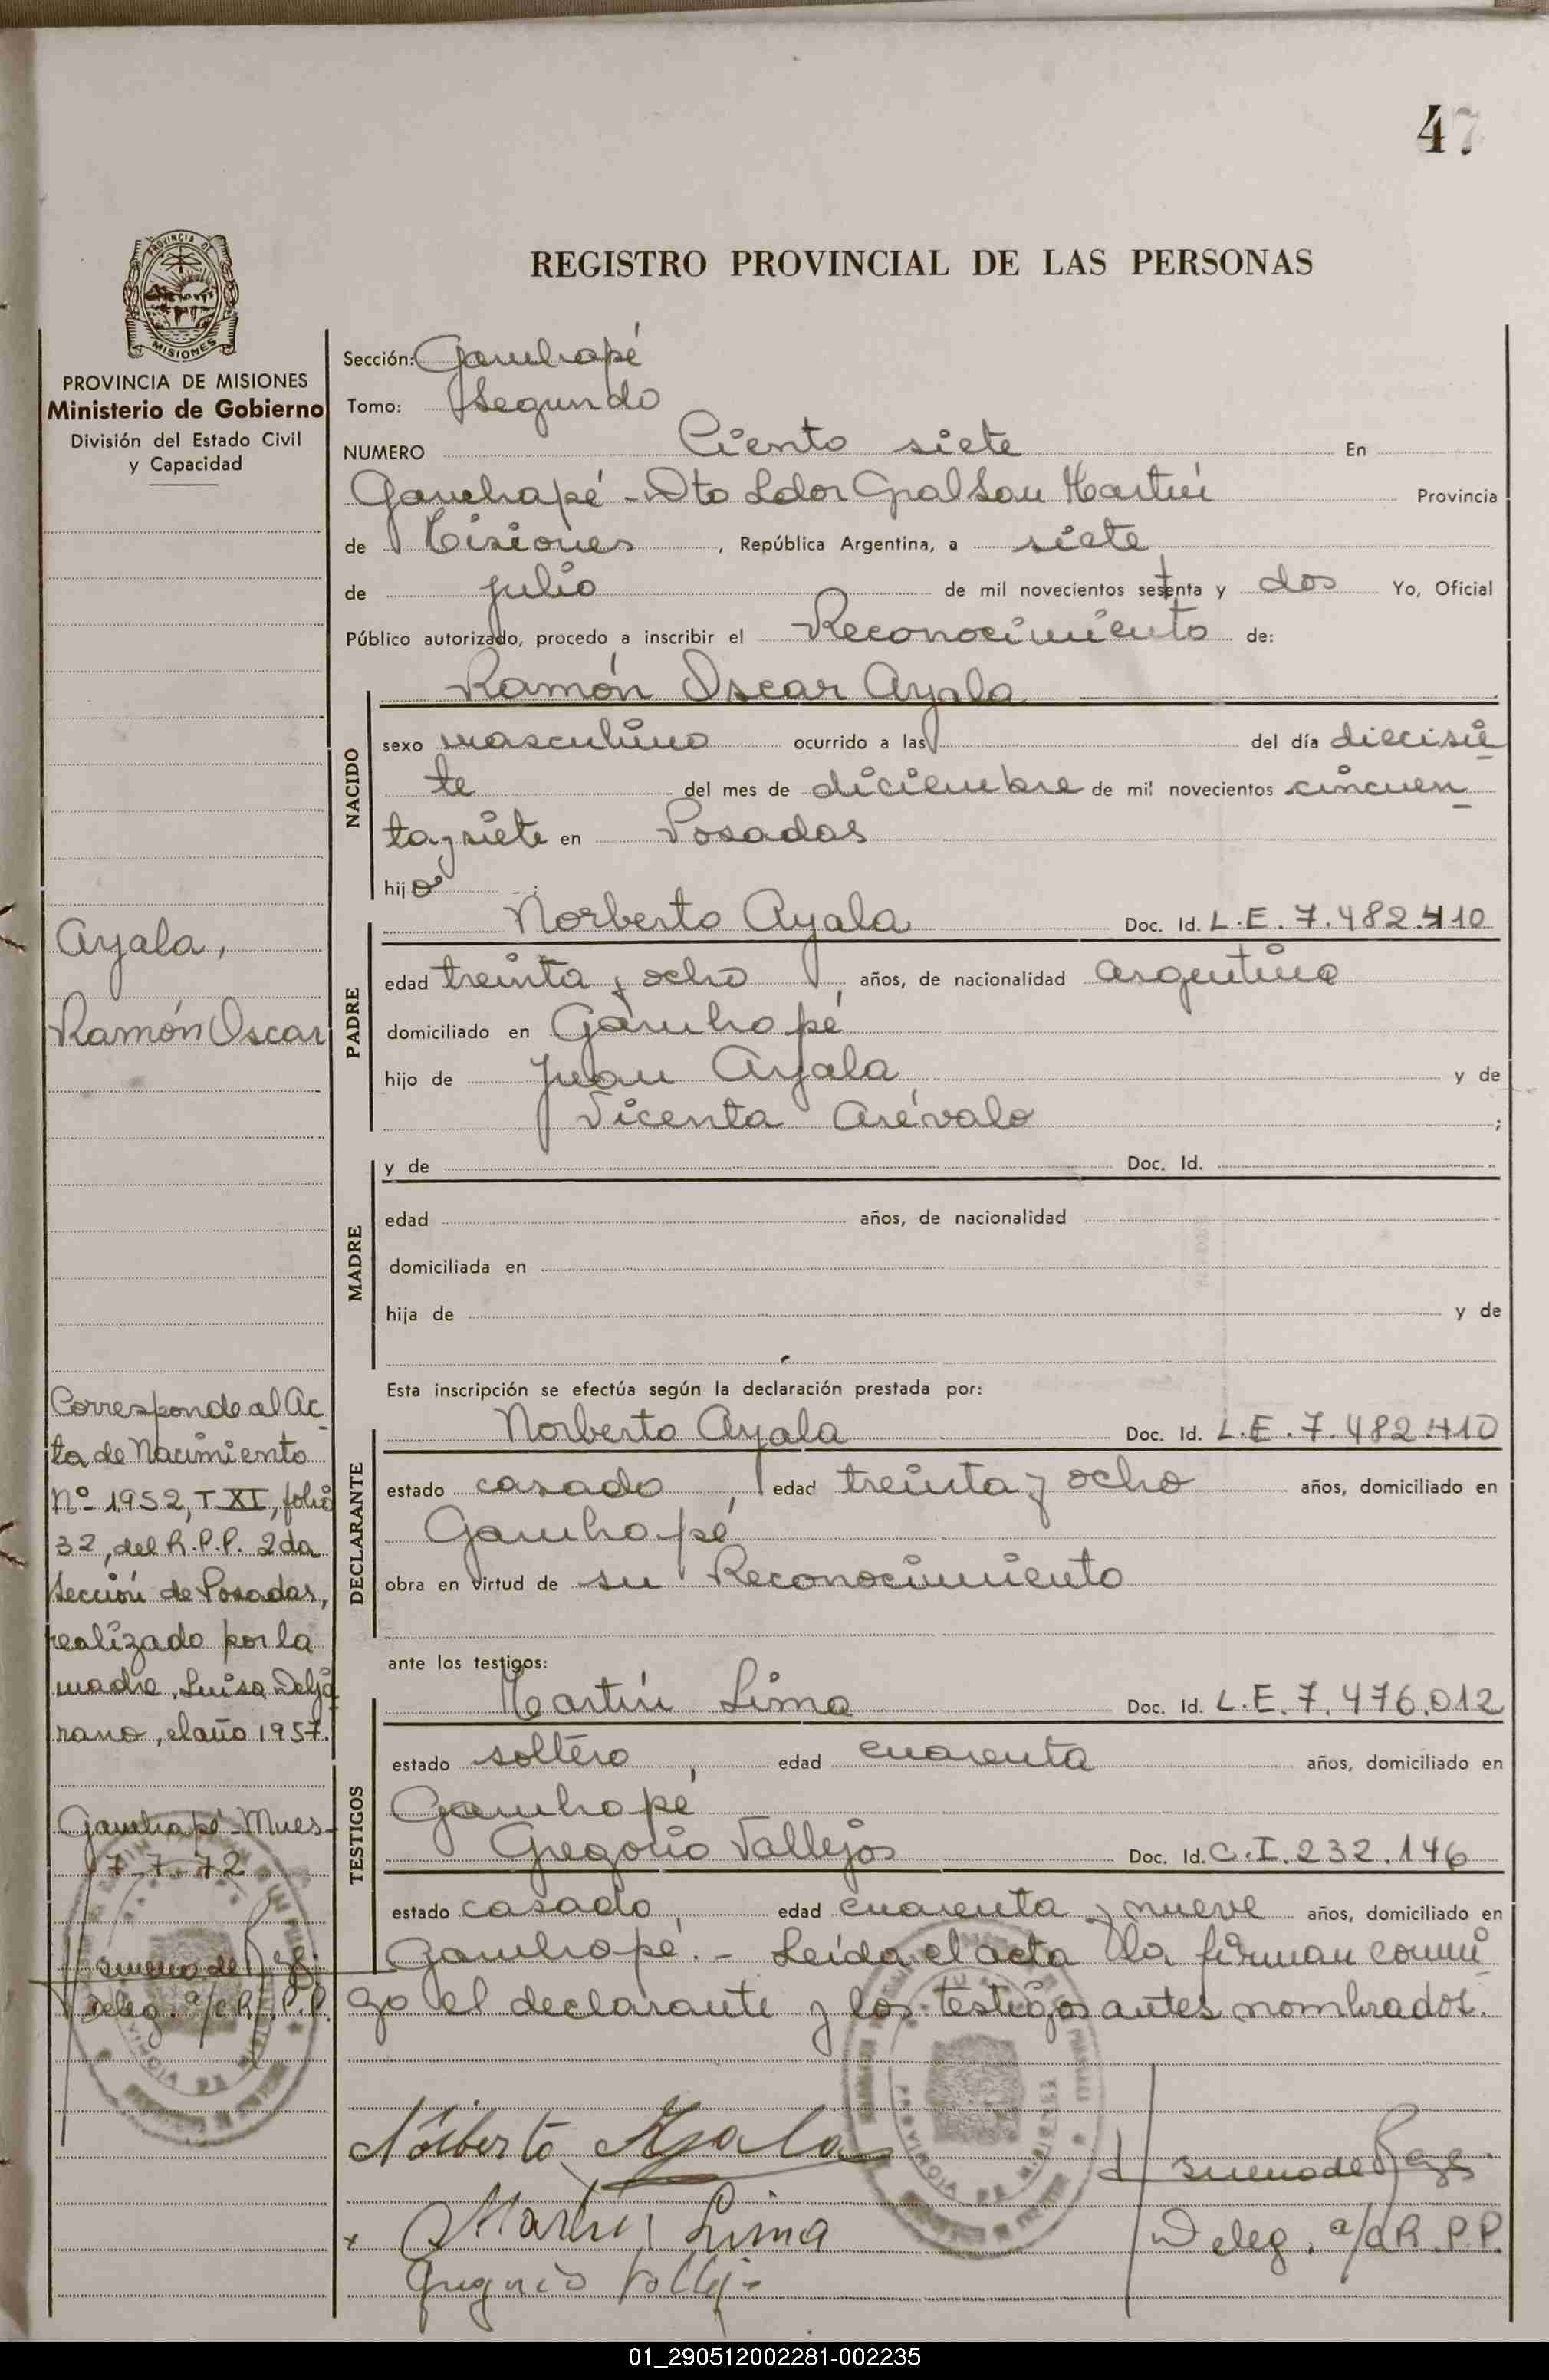 47
REGISTRO PROVINCIAL DE LAS PERSONAS
PROVINCIA DE MISIONES
Ministerio de Gobierno
División del Estado Civil
y Capacidad
Ayala,
Ramón Oscar
Corresponde al Ac-
ta de Nacimiento
Nº 1952, T XI, folio
32, del R.P.P. 2da
Sección de Posadas,
realizado por la
madre, Luisa Delja
rano, el año 1957.
Garuhapé-Mnes-
7-7-72
Deleg. a/c R.P.P.
Sección: Garuhapé
Tomo: Segundo
NUMERO Ciento siete En
Garuhapé - Dto Ldor Gral San Martín Provincia
de Misiones, República Argentina, a siete
de julio de mil novecientos setenta y dos Yo, Oficial
Público autorizado, procedo a inscribir el Reconocimiento de:
Ramón Oscar Ayala
NACIDO
sexo masculino ocurrido a las del día diecisie
te del mes de diciembre de mil novecientos cincuen
ta y siete en Posadas
hijo
PADRE
Norberto Ayala Doc. Id. L.E. 7.482.410
edad treinta y ocho años, de nacionalidad argentina
domiciliado en Garuhapé
hijo de Juan Ayala y de
Vicenta Arévalo ;
MADRE
y de Doc. Id.
edad años, de nacionalidad
domiciliada en
hija de y de
Esta inscripción se efectúa según la declaración prestada por:
DECLARANTE
Norberto Ayala Doc. Id. L.E. 7.482.410
estado casado, edad treinta y ocho años, domiciliado en
Garuhapé
obra en virtud de su Reconocimiento
ante los testigos:
TESTIGOS
Martín Lima Doc. Id. L.E. 7.476.012
estado soltero, edad cuarenta años, domiciliado en
Garuhapé
Gregorio Vallejos Doc. Id. C.I. 232.146
estado casado, edad cuarenta y nueve años, domiciliado en
Garuhapé.- Leída el acta la firman conmi
go el declarante y los testigos antes nombrados.
Norberto Ayala
Martin Lima
Deleg. a/c R.P.P.
01_290512002281-002235